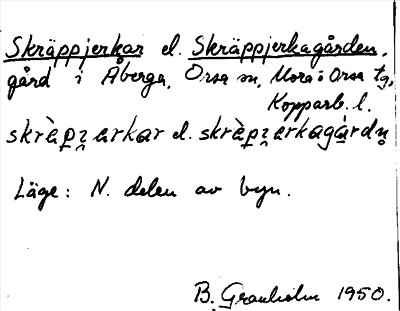 Skräppjerkar el. Skräppjerkagården,
gård i Åberga, Orsa sn, Mora o Orsa tg,
Kopparb. l.
skràpʒ̣arkar el. skràpʒ̣arkagàrdn̥
Läge: N. delen av byn.
B. Granholm 1950.